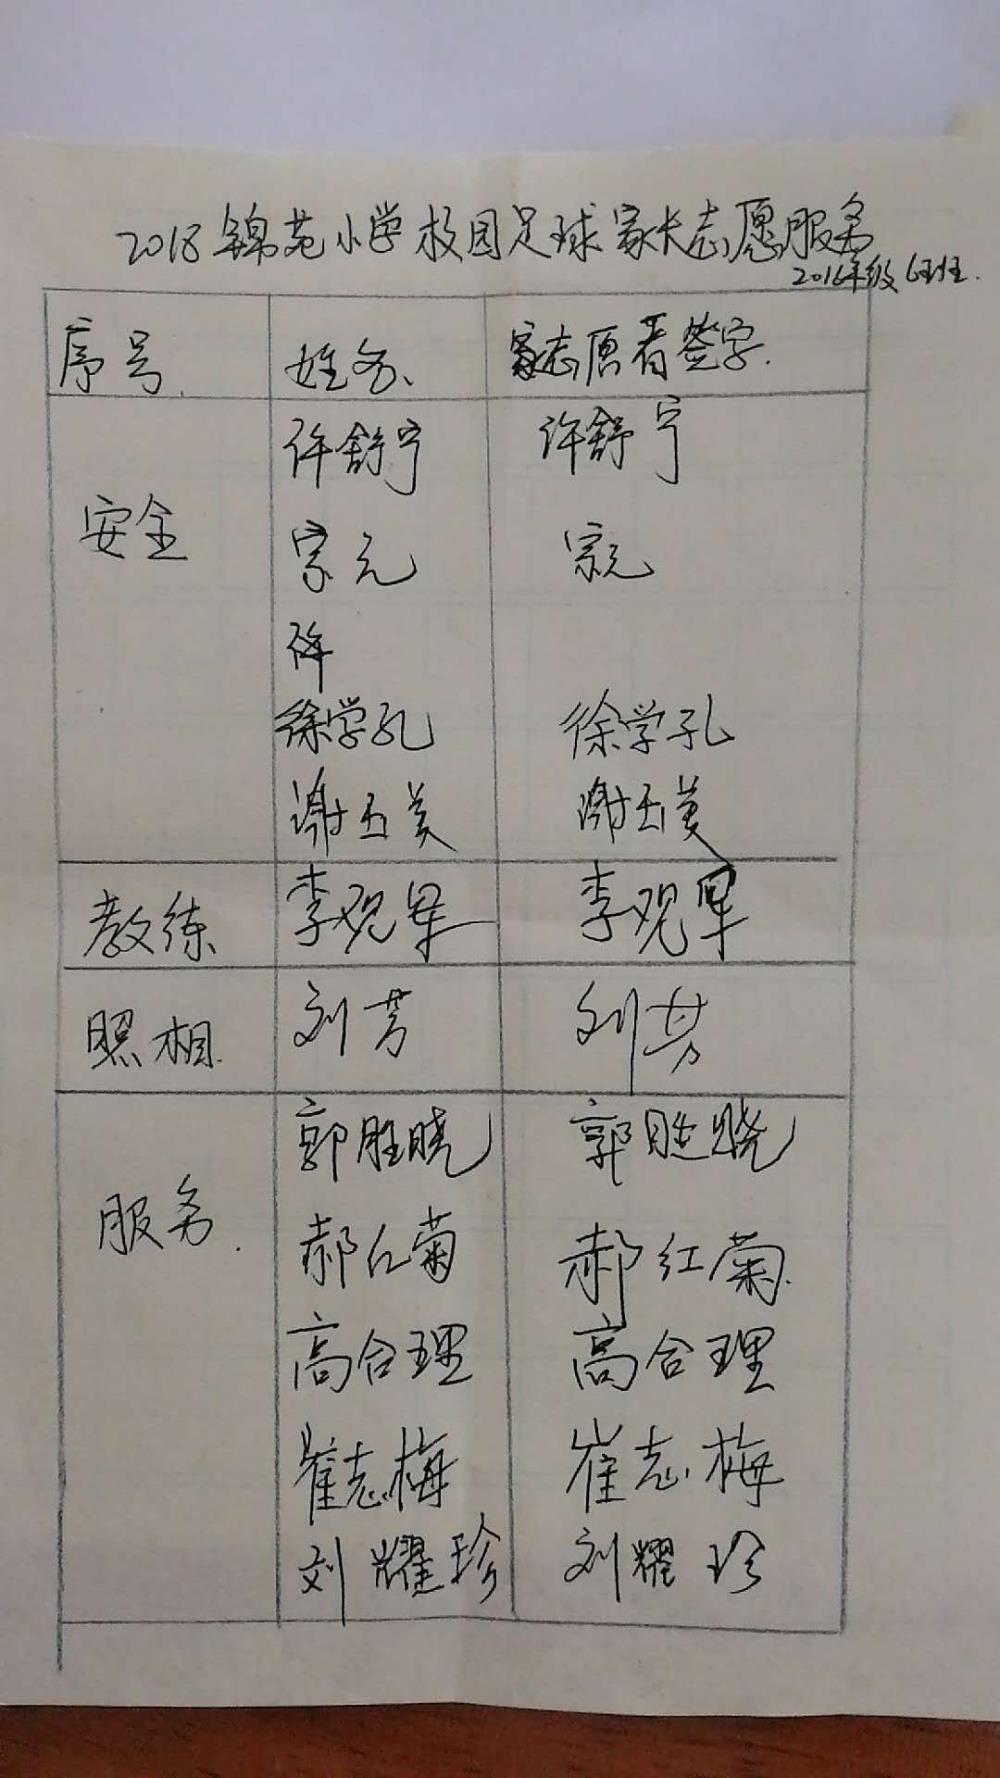 2018锦苑小学校园足球家长志愿服务
2016年级6班
序号 姓名 家志愿者签字
许舒宁 许舒宁
安全
宗元 宗元
许
徐学孔 徐学孔
谢玉美 谢玉美
教练 李观军 李观军
照相 刘芳 刘芳
郭胜晓 郭胜晓
服务
郝红菊 郝红菊
高合理 高合理
崔志梅 崔志梅
刘耀珍 刘耀珍